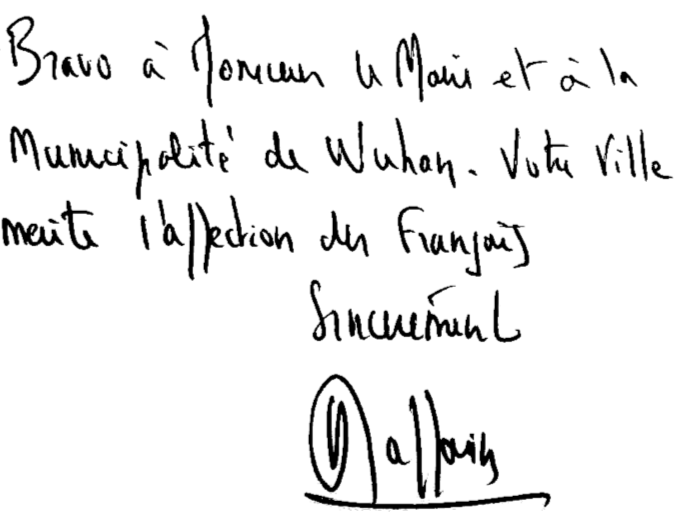 Bravo à Monsieur le Maire et à la
Municipalité de Wuhan. Votre Ville
merite l'affection des Français
Sincerement
Raffarin